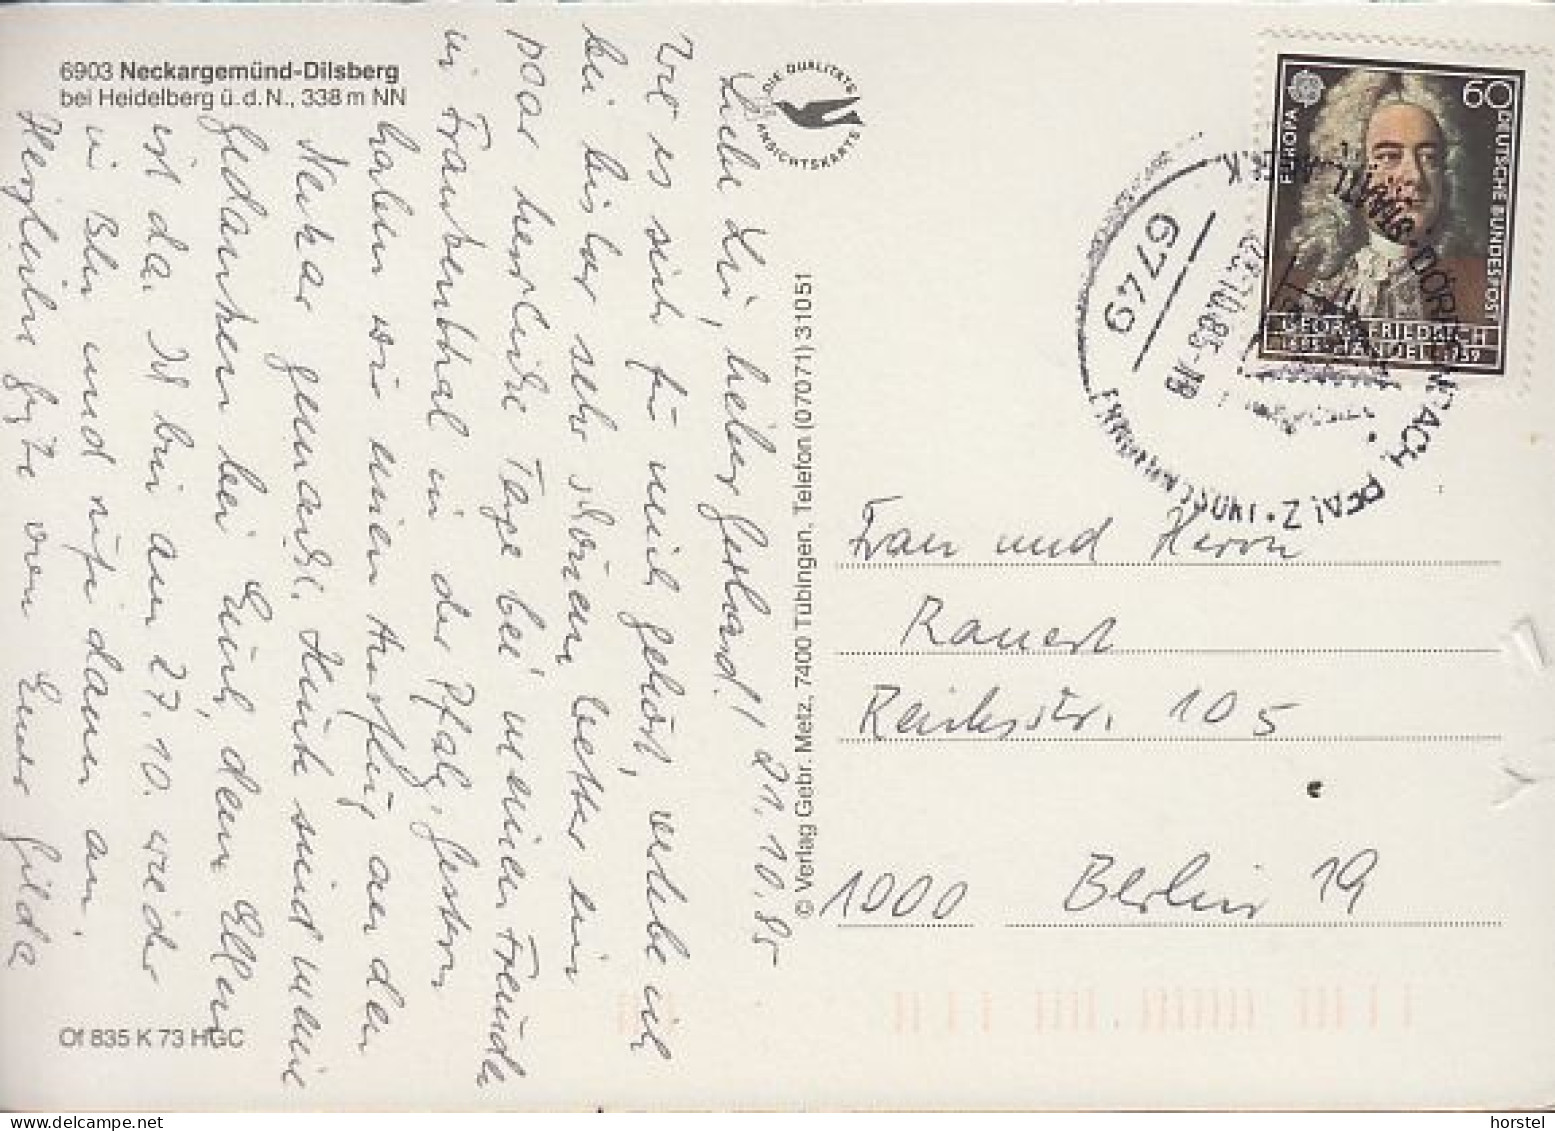 6903 Neckargemünd-Dilsberg
bei Heidelberg ü. d. N., 338 m NN
DIE QUALITÄTS
ANSICHTSKARTE
60
DEUTSCHE BUNDESPOST
EUROPA
GEORG FRIEDRICH
HÄNDEL
6749
22.10.85-18
Liebe Li, lieber Gerhard! 21.10.85
Wie es sich für mich gehört, erlebe ich
bei bisher sehr schönem Wetter ein
paar herrliche Tage bei meinen Freunden
in Frankenthal in der Pfalz. Gestern
haben wir einen Ausflug an den
Neckar gemacht. Heute sind meine
Gedanken bei Euch, denn Ellen
ist da. Ich bin am 27.10. wieder
in Bln und rufe dann an.
Herzliche Grüße von Eurer Gilda
© Verlag Gebr. Metz, 7400 Tübingen, Telefon (07071) 31051
Frau und Herrn
Rauert
Reichsstr. 105
1000 Berlin 19
Of 835 K 73 HGC
horstel